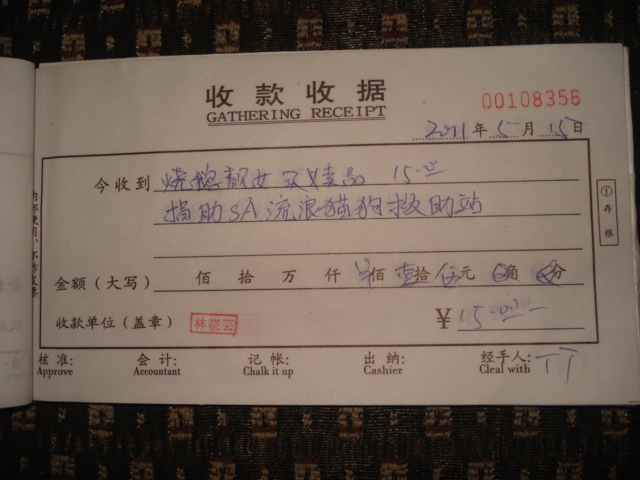 收款收据
GATHERING RECEIPT
00108356
2011年5月15日
今收到 烧鹅靓女 义卖品 15.00
捐助SA流浪猫狗救助站
①存根
金额（大写） 佰 拾 万 仟 佰 壹拾 伍元 0角 0分
收款单位（盖章） 林晓芸 ¥15.00
核准: 会计: 记帐: 出纳: 经手人: TT
Approve Accountant Chalk it up Cashier Cleal with